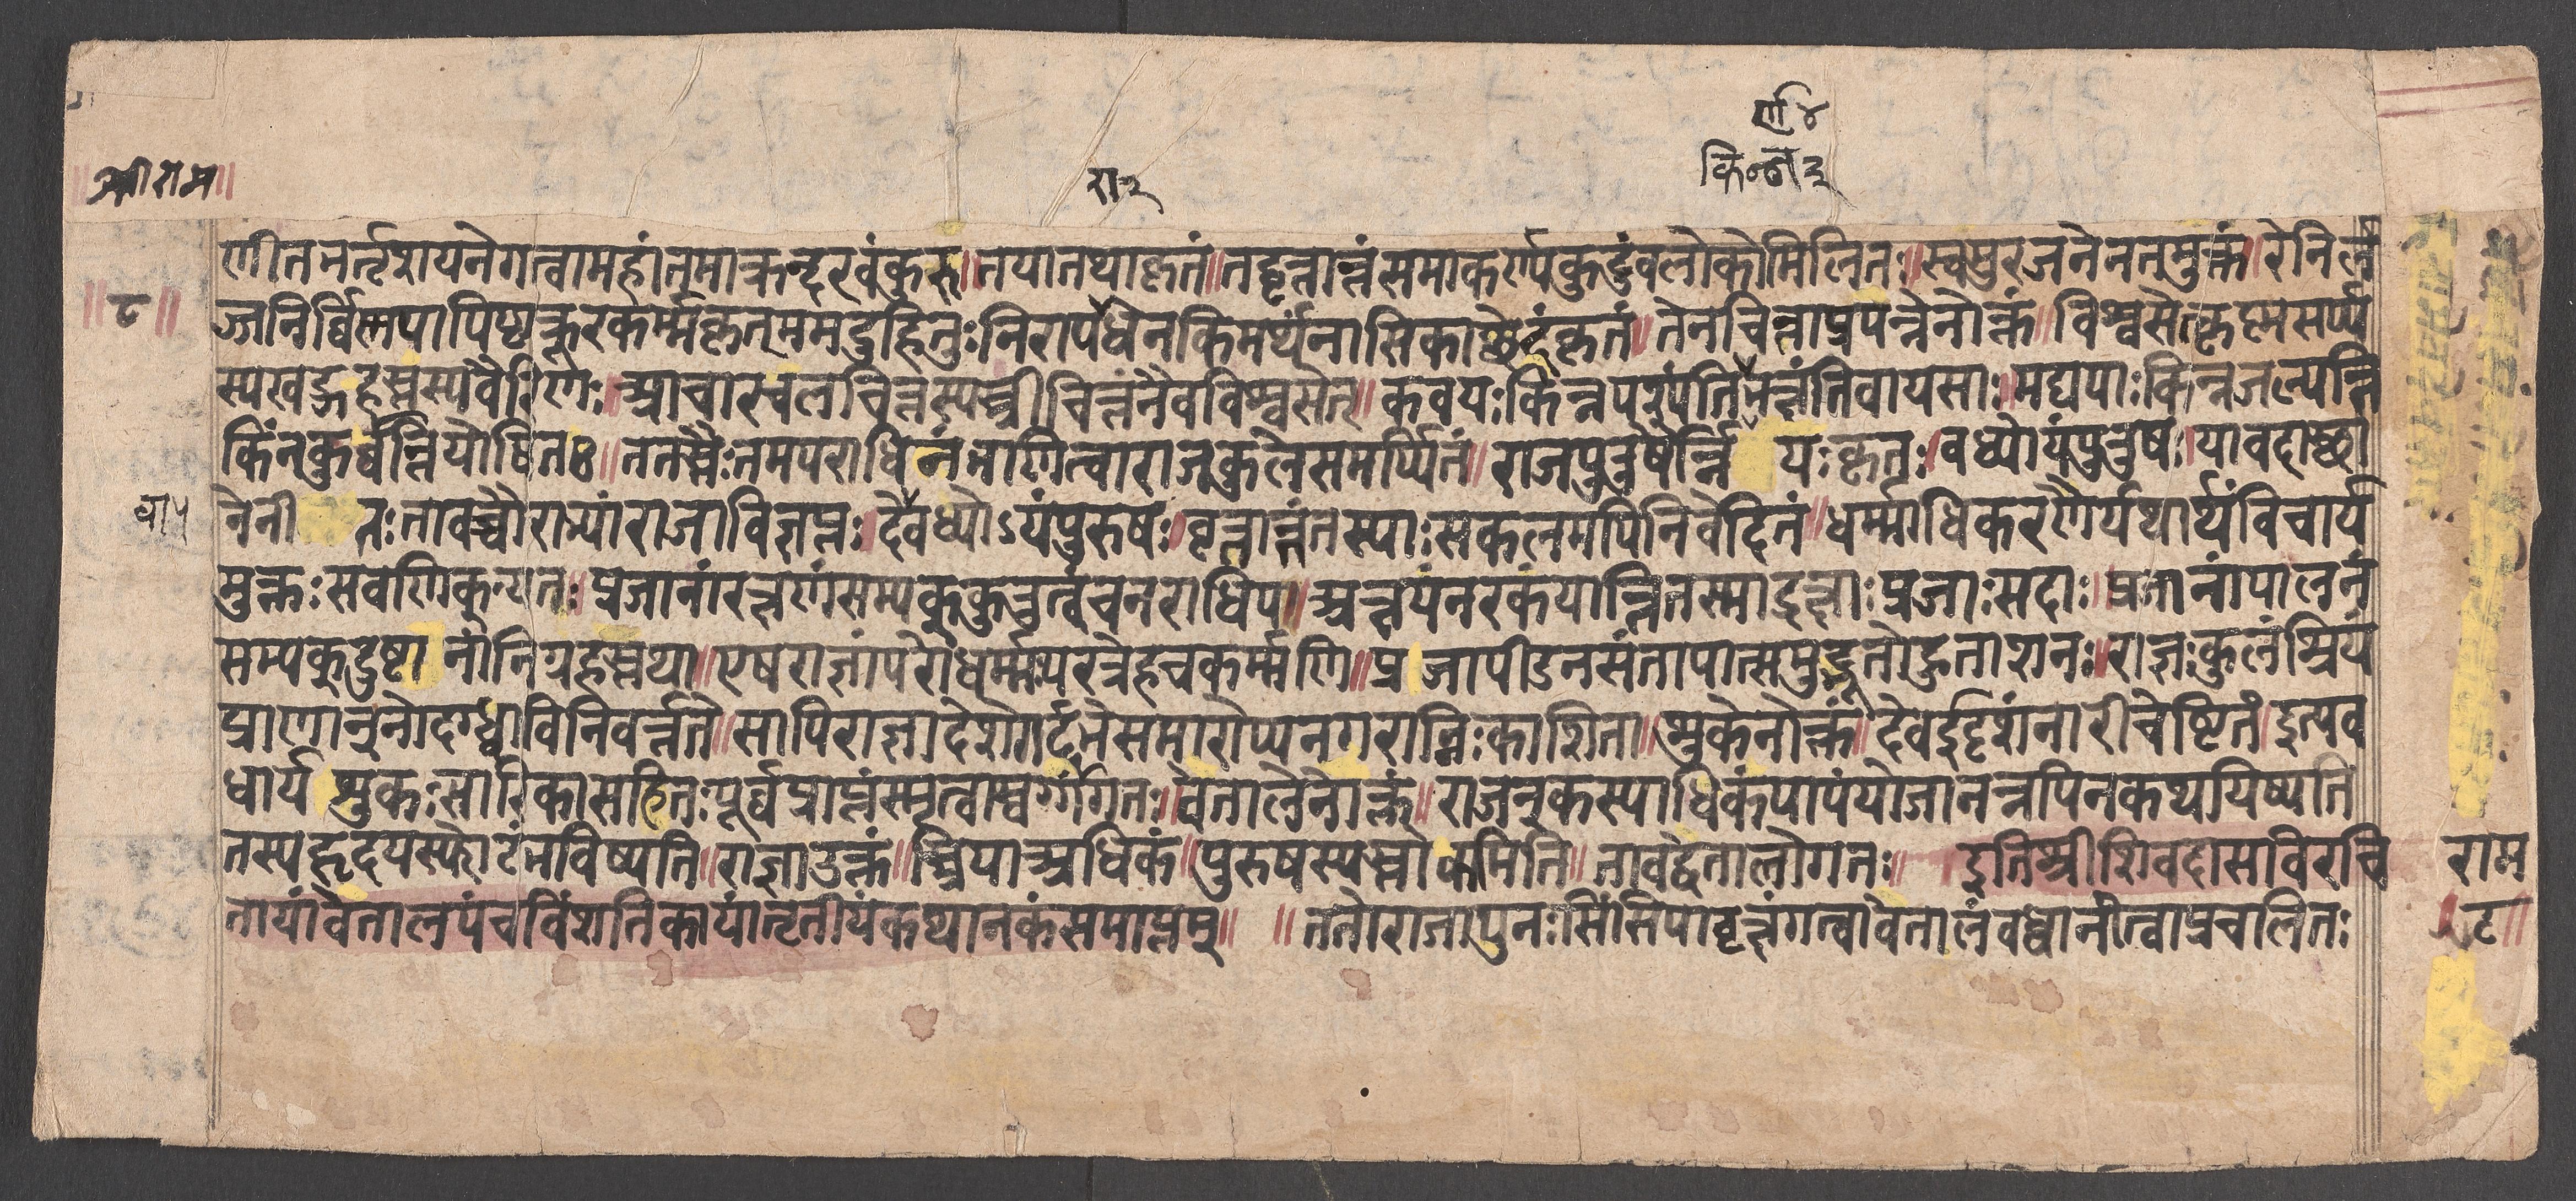 रा४
किं॰ज॰३
श्रीराम
रा२
णीतभर्तृशयनेगत्वामहांतमाक्रन्दरवंकुरु॥तयातथाकृतं॥तद्वृत्तान्तंसमाकर्ण्यकुटुंबलोकोमिलितः॥स्वसुरजनेनतमुक्तं॥रेनिर्ल
॥८॥
ज्जनिर्घृणपापिष्ठक्रूरकर्म्मकृत्ममदुहितुःनिरापराधेनकिमर्थंनासिकाछेदंकृतं॥तेनचिन्ताप्रपन्नेनोक्तं॥विश्वसेत्कृष्णसर्प्प
स्यखड्गहस्तस्यवैरिणः॥आचारचलचित्तस्यस्त्रीचित्तंनैवविश्वसेत्॥कवयःकिन्नपश्यंतिकिन्नभक्षंतिवायसाः॥मद्यपाःकिन्नजल्पन्ति
किंन्कुर्व्वन्तियोषितः॥ततस्तैःतमपराधिनंभणित्वाराजकुलेसमर्प्पितं॥राजपुरुषैर्न्निर्णयःकृतः॥वध्योयंपुरुषः॥यावद्बाह्या
वा५
नेनीतःतावच्चौराभ्यांराजाविज्ञप्तः॥देवध्योऽयंपुरुषः॥वृत्तान्तंतस्याःसकलमपिनिवेदितं॥धर्म्माधिकरणैर्यथार्थंविचार्य
मुक्तःसवणिक्सुतः॥प्रजानांरक्षणंसम्यक्कुरुत्वंचनराधिप॥अन्त्ययंनरकंयान्तितस्माद्रक्ष्याःप्रजाःसदाः॥प्रजानांपालनं
सम्यक्दुष्टानांनिग्रहस्तथा॥एषराज्ञांपरोधर्म्मःपरत्रेहचकर्म्मणि॥प्रजापीडनसंतापात्समुद्भूतोहुताशनः॥राज्ञःकुलंश्रियं
प्राणान्नोदग्ध्वाविनिवर्त्तते॥सापिराज्ञादेशेगर्दभेसमारोप्यनगरान्निःकाशिता॥शुकेनोक्तं॥देवेईदृशंनारीचेष्टितं॥इत्यव
धार्यशुकःसारिकासहितःपूर्व्वप्राप्तंस्मृत्वास्वर्ग्गंगतः॥वेतालेनोक्तं॥राजन्कस्याधिकंपापंयोजानन्नपिनकथयिष्यति
तस्यहृदयस्फोटंभविष्यति॥राज्ञाउक्तं॥स्त्रियाअधिकं॥पुरुषस्यस्तोकमिति॥तावद्वेतालोगतः॥ इतिश्रीशिवदासविरचि
राम
तायांवेतालपंचविंशतिकायांतृतीयंकथानकंसमाप्तम्॥ ॥ततोराजापुनःसिंसिपावृक्षंगत्वावेतालंबध्वानीत्वाप्रचालितः
॥८॥